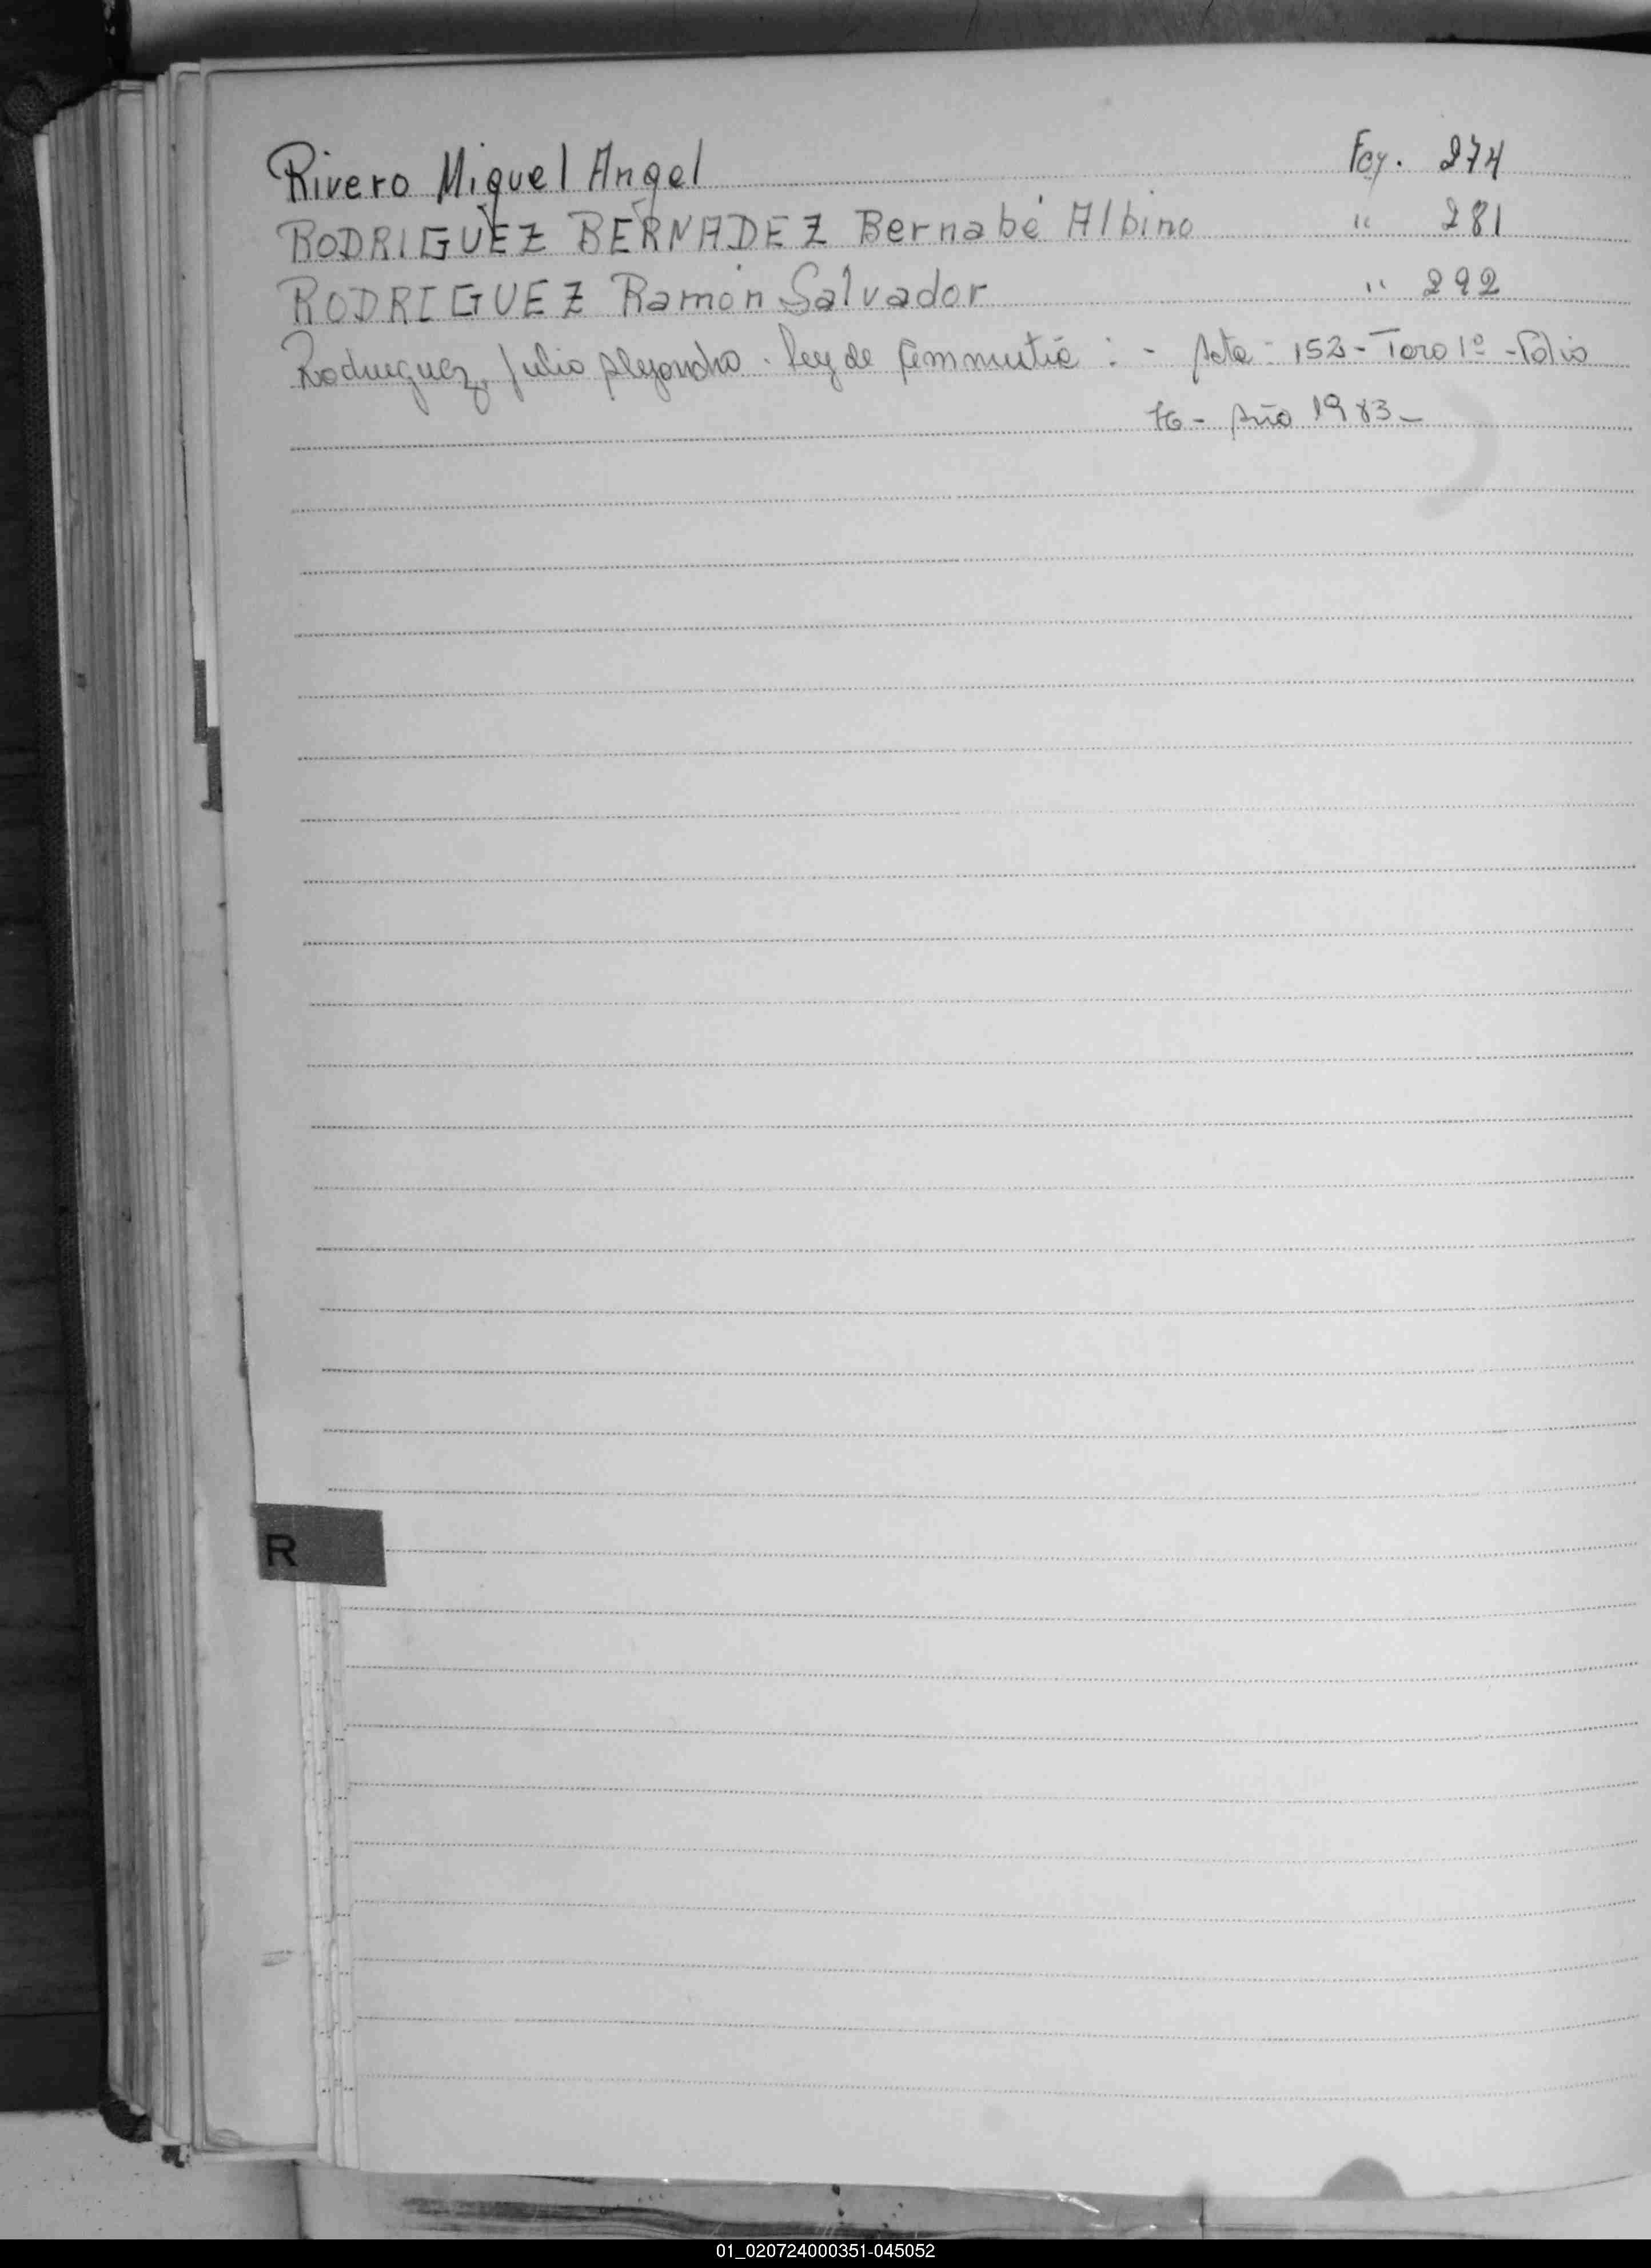 Rivero Miguel Angel Foy. 274
RODRIGUEZ BERNADEZ Bernabé Albino " 281
RODRIGUEZ Ramón Salvador " 292
Rodriguez, Julio Alejandro. Ley de Amnistía : - Acta - 153 - Tomo 1º - Folio
76 - Año 1983 -
R
01_020724000351-045052